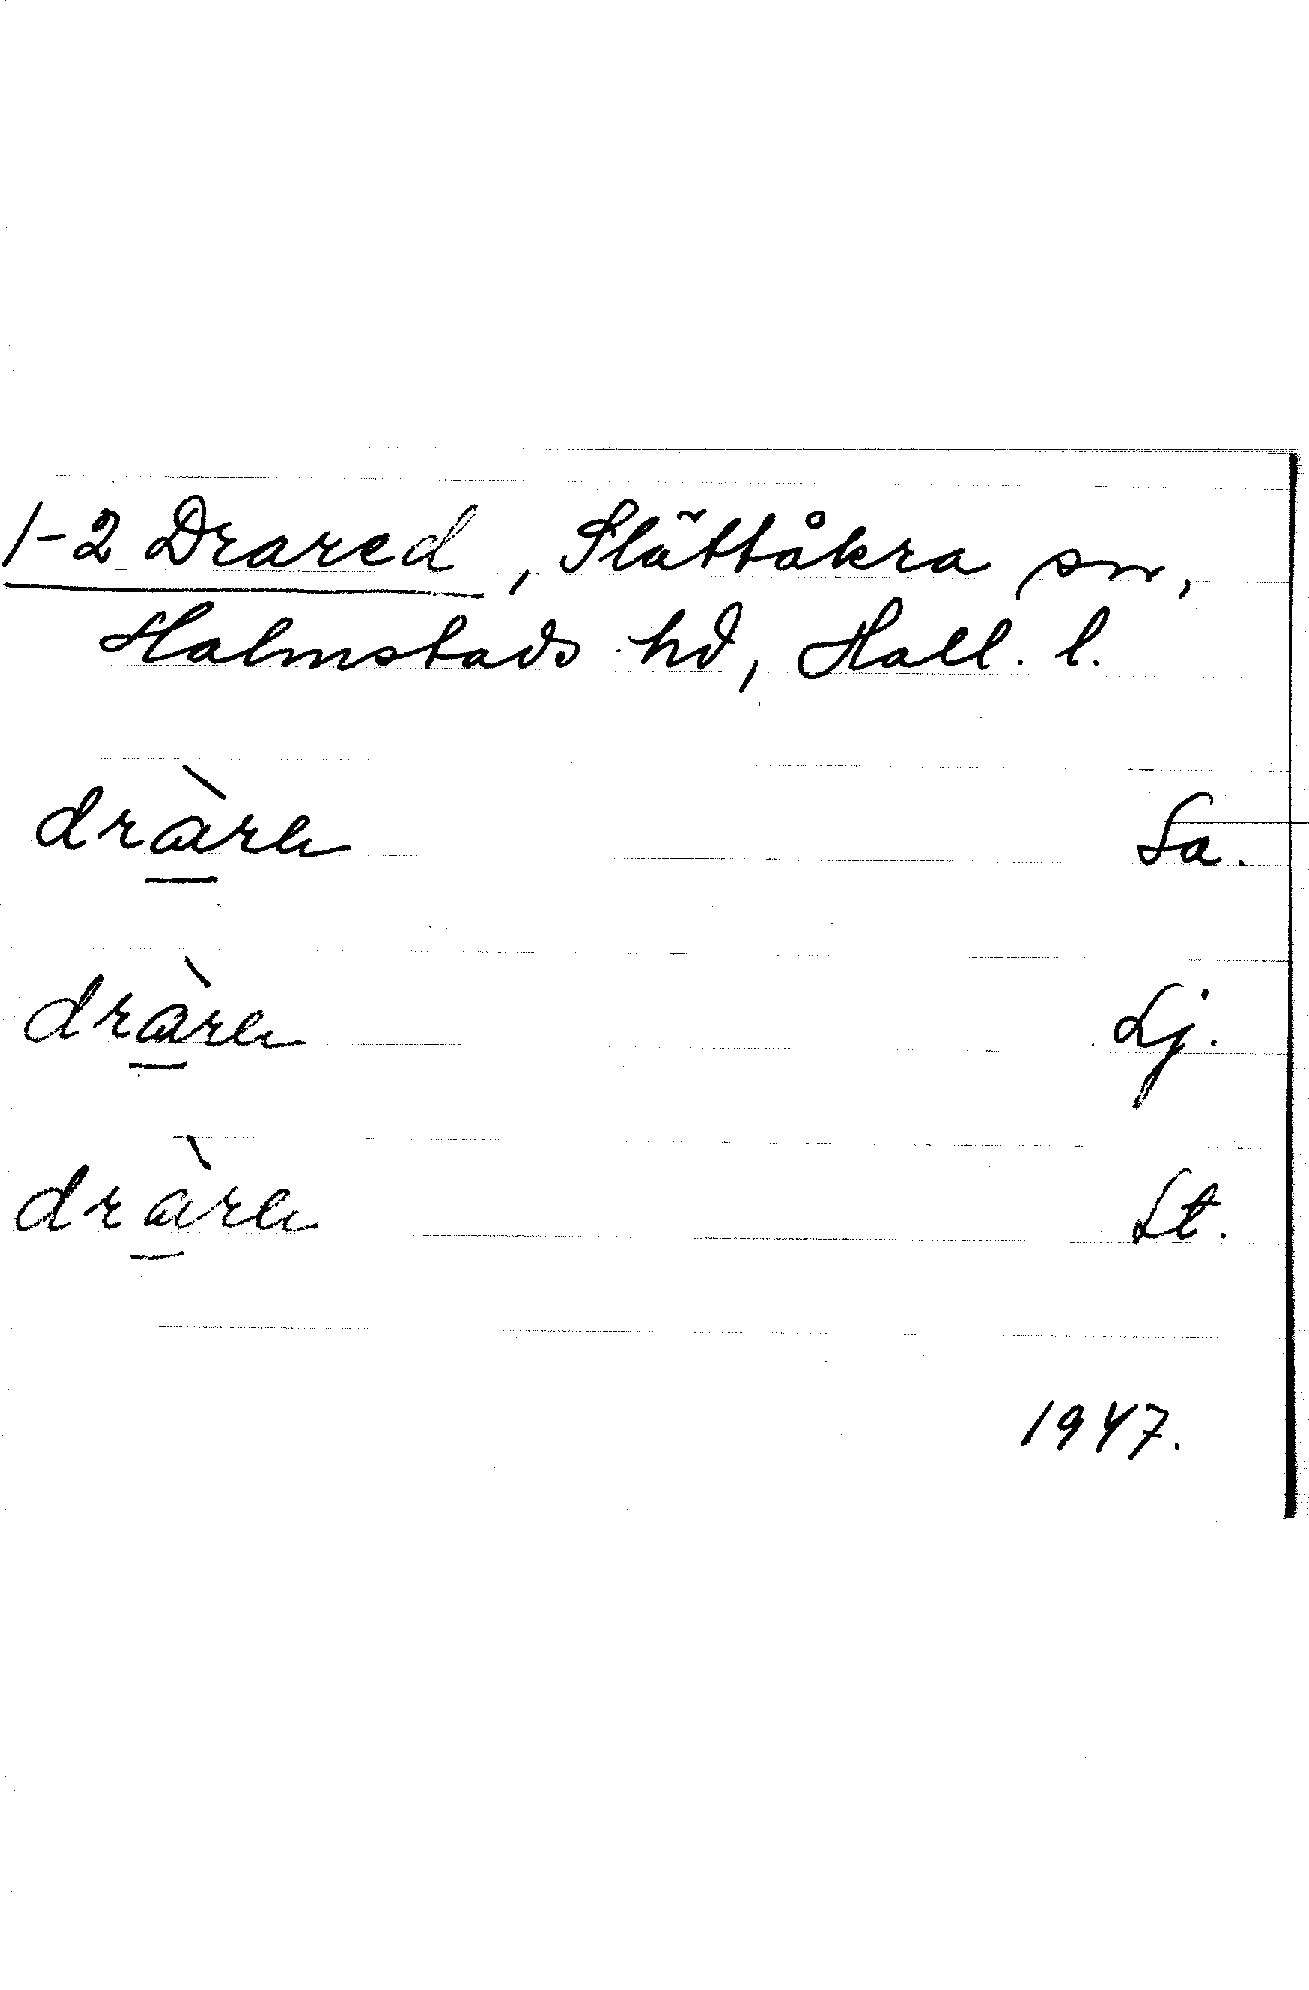 1-2 Drared, Slättåkra sn,
Halmstads hd, Hall. l.
Sa.
Lj.
Lt.
1947.